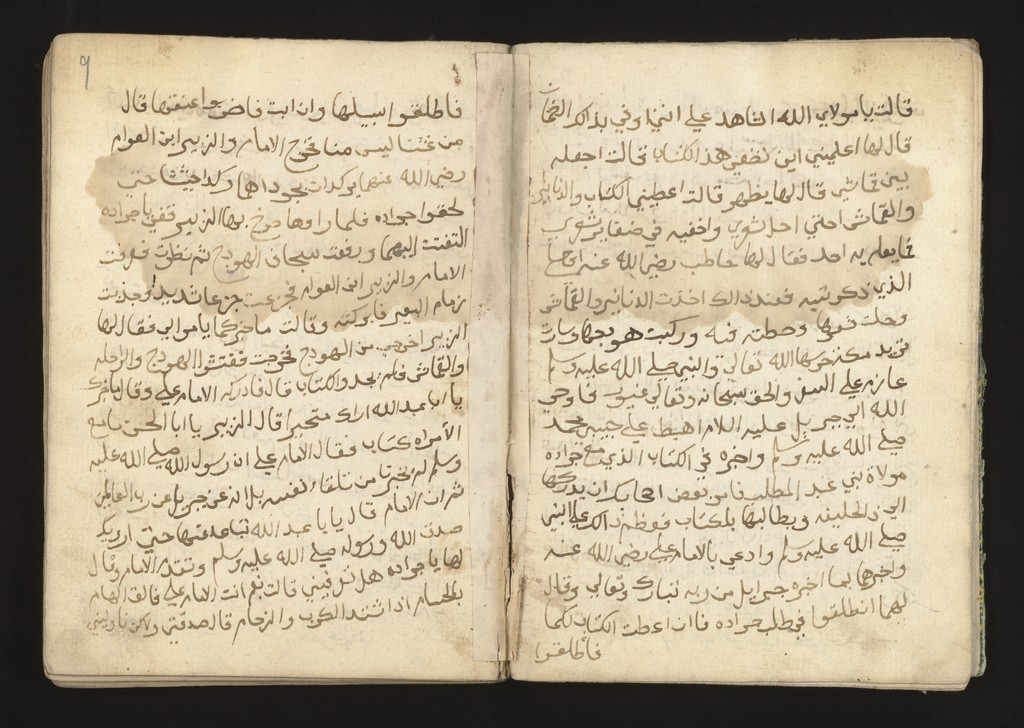 قالت يا مولاي الله الشاهد علي انني اوفي بذالك
قال لها اعلميني اين تظعي هذ الكتاب قالت اجعله
بين قماشي قال لها يظهر قالت اعطيني الكتاب والدنانير
والقماش احلي احل شعري واخفيه في ضفاير شعري
فما يعلم به احد فقال لها حاطب رضي الله عنه
الذي ذكرتيه فعند ذالك اخذت الدنانير والقماش
وحلت شعرها وحطته فيه وركبت هودجها وسارت
تريد مكه حرسها الله تعالي والنبي صلي الله عليه وسلم
عازم علي السفر والحق سبحانه وتعالي غيور فاوحي
الله الي جبريل عليه السلام اهبط علي حبيبي محمد
صلي الله عليه وسلم واخبره في الكتاب الذي مع جراده
مولاة بني عبد المطلب فامر بعض اصحابك ان يدركها
الي ذالحليفه ويطالبها بلكتاب فعظم ذالك علي النبي
صلي الله عليه وسلم وادعي بالامام علي رضي الله عنه
واخبرهما بما اخبره جبرايل من ربه تبارك وتعالي وقال
لهما انطلقوا في طلب جراده فاان اعطت الكتاب لكما
فأطلقوا
٩
فاطلقوا سبيلها وان ابت فاضربوا عنقها قال
من غشنا ليس منا فخرج الامام والزبير ابن العوام
رضي الله عنهما يركدان بجوداهما حتي
لحقوا جراده فلما راوها صرخ بها الزبير قفي يا جراده
التفتت اليهما ورفعت سجاف الهودج ثم نظرت فعرفت
الامام والزبير ابن العوام فجزعت جزعا شديد وجذبت
زمام البعير فابركته وقالت ما خبركما يا موالي فقال لها
الزبير اخرجي من الهودج فخرجت ففتشوا الهودج والراحله
والقماش فلم يجد والكتاب قال فادركه الامام علي وقال
يا ابا عبد الله اراك متحير قال الزبير يا ابا الحسن ما مع
الأمراه كتاب فقال الامام علي ان رسول الله صلي الله عليه
وسلم لم يخبرنا من تلقاء نفسه بل انه عن جبريل عن رب العالمين
ثم ان الامام قال يا با عبد الله تباعد عنها حتي اوريك
صدق الله ورسوله صلي الله عليه وسلم وتقدم الامام وقال
لها يا جراده هل تعرفيني قالت نعم انت الامام علي فالق الهام
بالحسام اذا اشتد الكرب والزحام قال صدقتي ولاكن